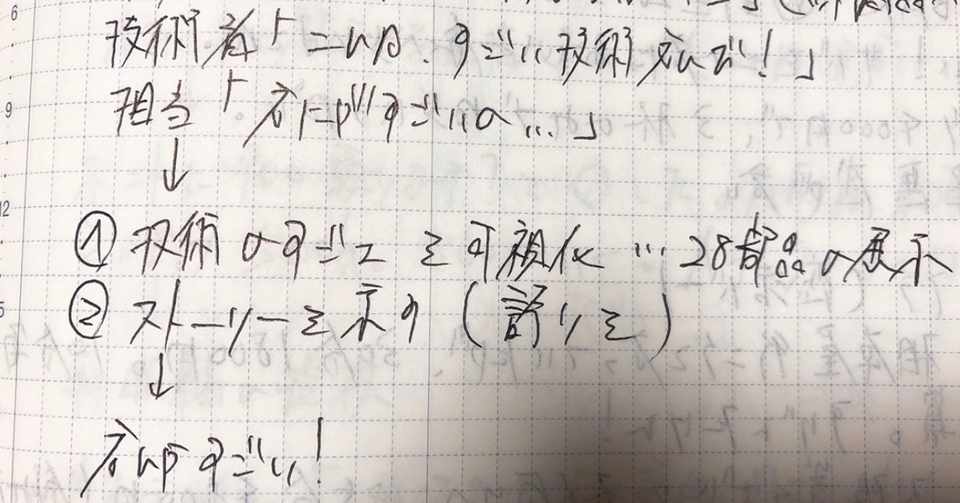 技術者「これは、すごい技術なんだ!」
担当「なにがすごいの…」
↓
① 技術のすごさを可視化…28部品の展示
② ストーリーを示す(誇りを)
↓
なんかすごい!